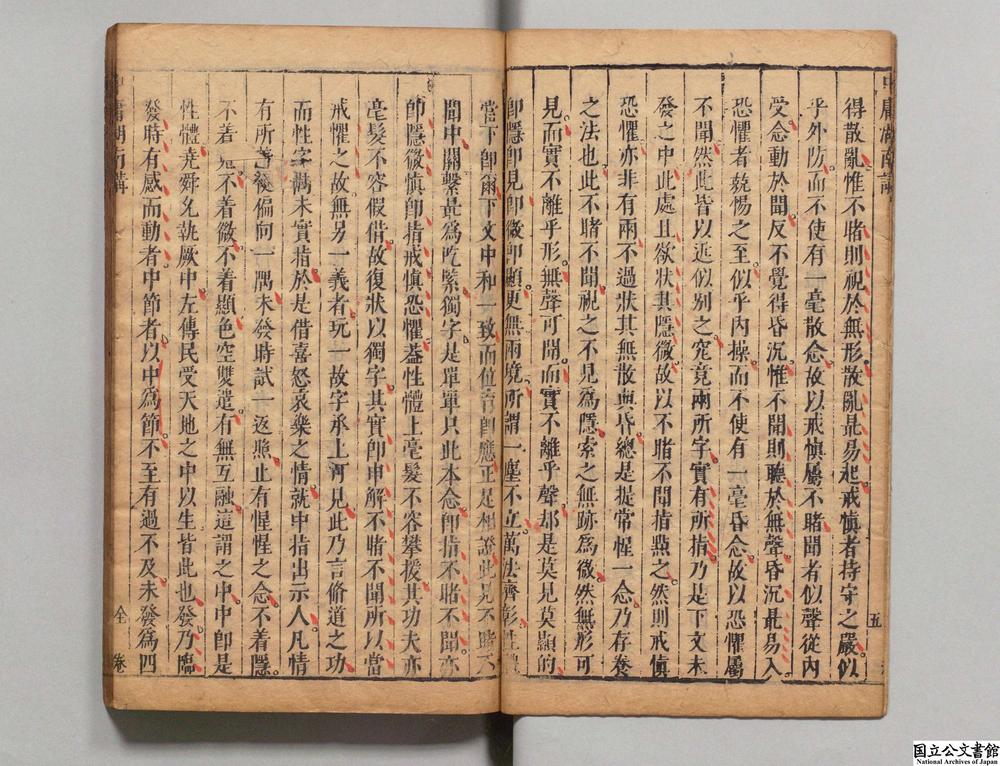 得散亂惟不睹則視於無形散亂最易起戒慎者持守之嚴似
乎外防而不使有一毫散念故以戒慎屬不睹聞者似聲從內
受念動於聞反不覺得昏沉惟不聞則聽於無聲昏沉最易入
恐懼者兢惕之至似乎內操而不使有一毫昏念故以恐懼屬
不聞然此皆以近似別之究竟兩所字實有所指乃是下文未
發之中此處且欲狀其隱微故以不睹不聞指點之然則戒慎
恐懼亦非有兩不過狀其無散與昏總是提常惺一念乃存養
之法也此不睹不聞視之不見為隱索之無跡為微然無形可
見而實不離乎形無聲可聞而實不離乎聲却是莫見莫顯的
即隱即見即微即顯更無兩境所謂一塵不立萬法齊彰性
當下即爾下文中和一致而位育即應正是相證此見不睹不
聞中關繫最為吃緊獨字是單單只此本念即指不睹不聞亦
即隱微慎即指戒慎恐懼葢性體上毫髮不容攀援其功夫亦
毫髮不容假借故復狀以獨字其實即申解不睹不聞所以當
戒懼之故無另一義者玩一故字承上可見此乃言脩道之功
而性字尚未實指於是借喜怒哀樂之情就中指出示人凡情
有所着從偏向一隅未發時試一返照止有惺惺之念不着隱
不着見不着微不着顯色空雙遣有無互融這謂之中中即是
性體堯舜允執厥中左傳民受天地之中以生皆此也發乃臨
發時有感而動者中節者以中為節不至有過不及未發為四
五
全
卷
国立公文書館
National Archives of Japan